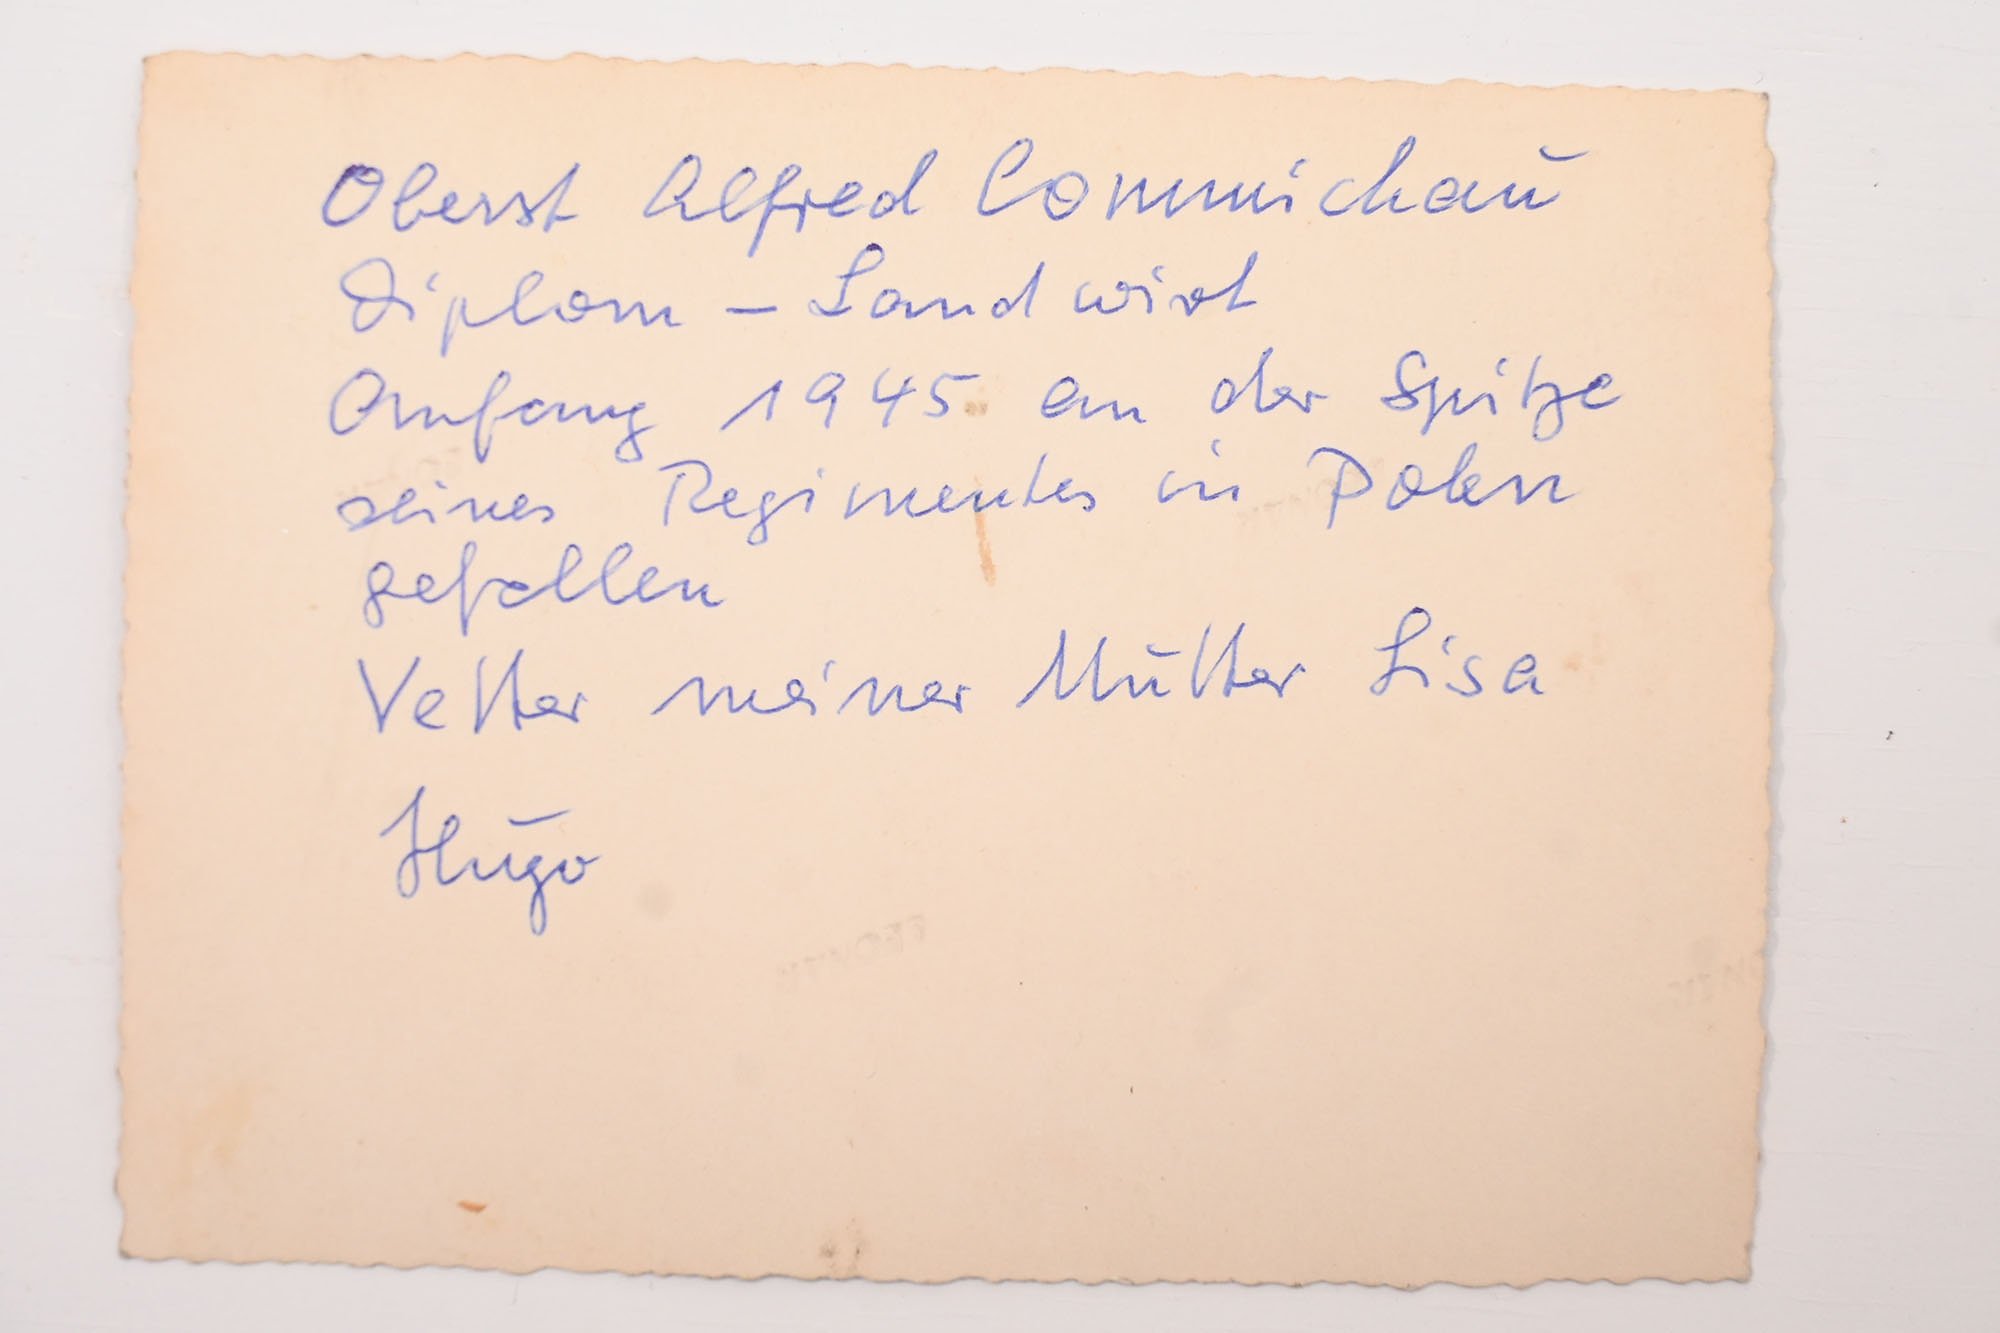 Oberst Alfred Commichau
Diplom - Landwirt
Anfang 1945 an der Spitze
seines Regimentes in Polen
gefallen
Vetter meiner Mutter Lisa
Hugo